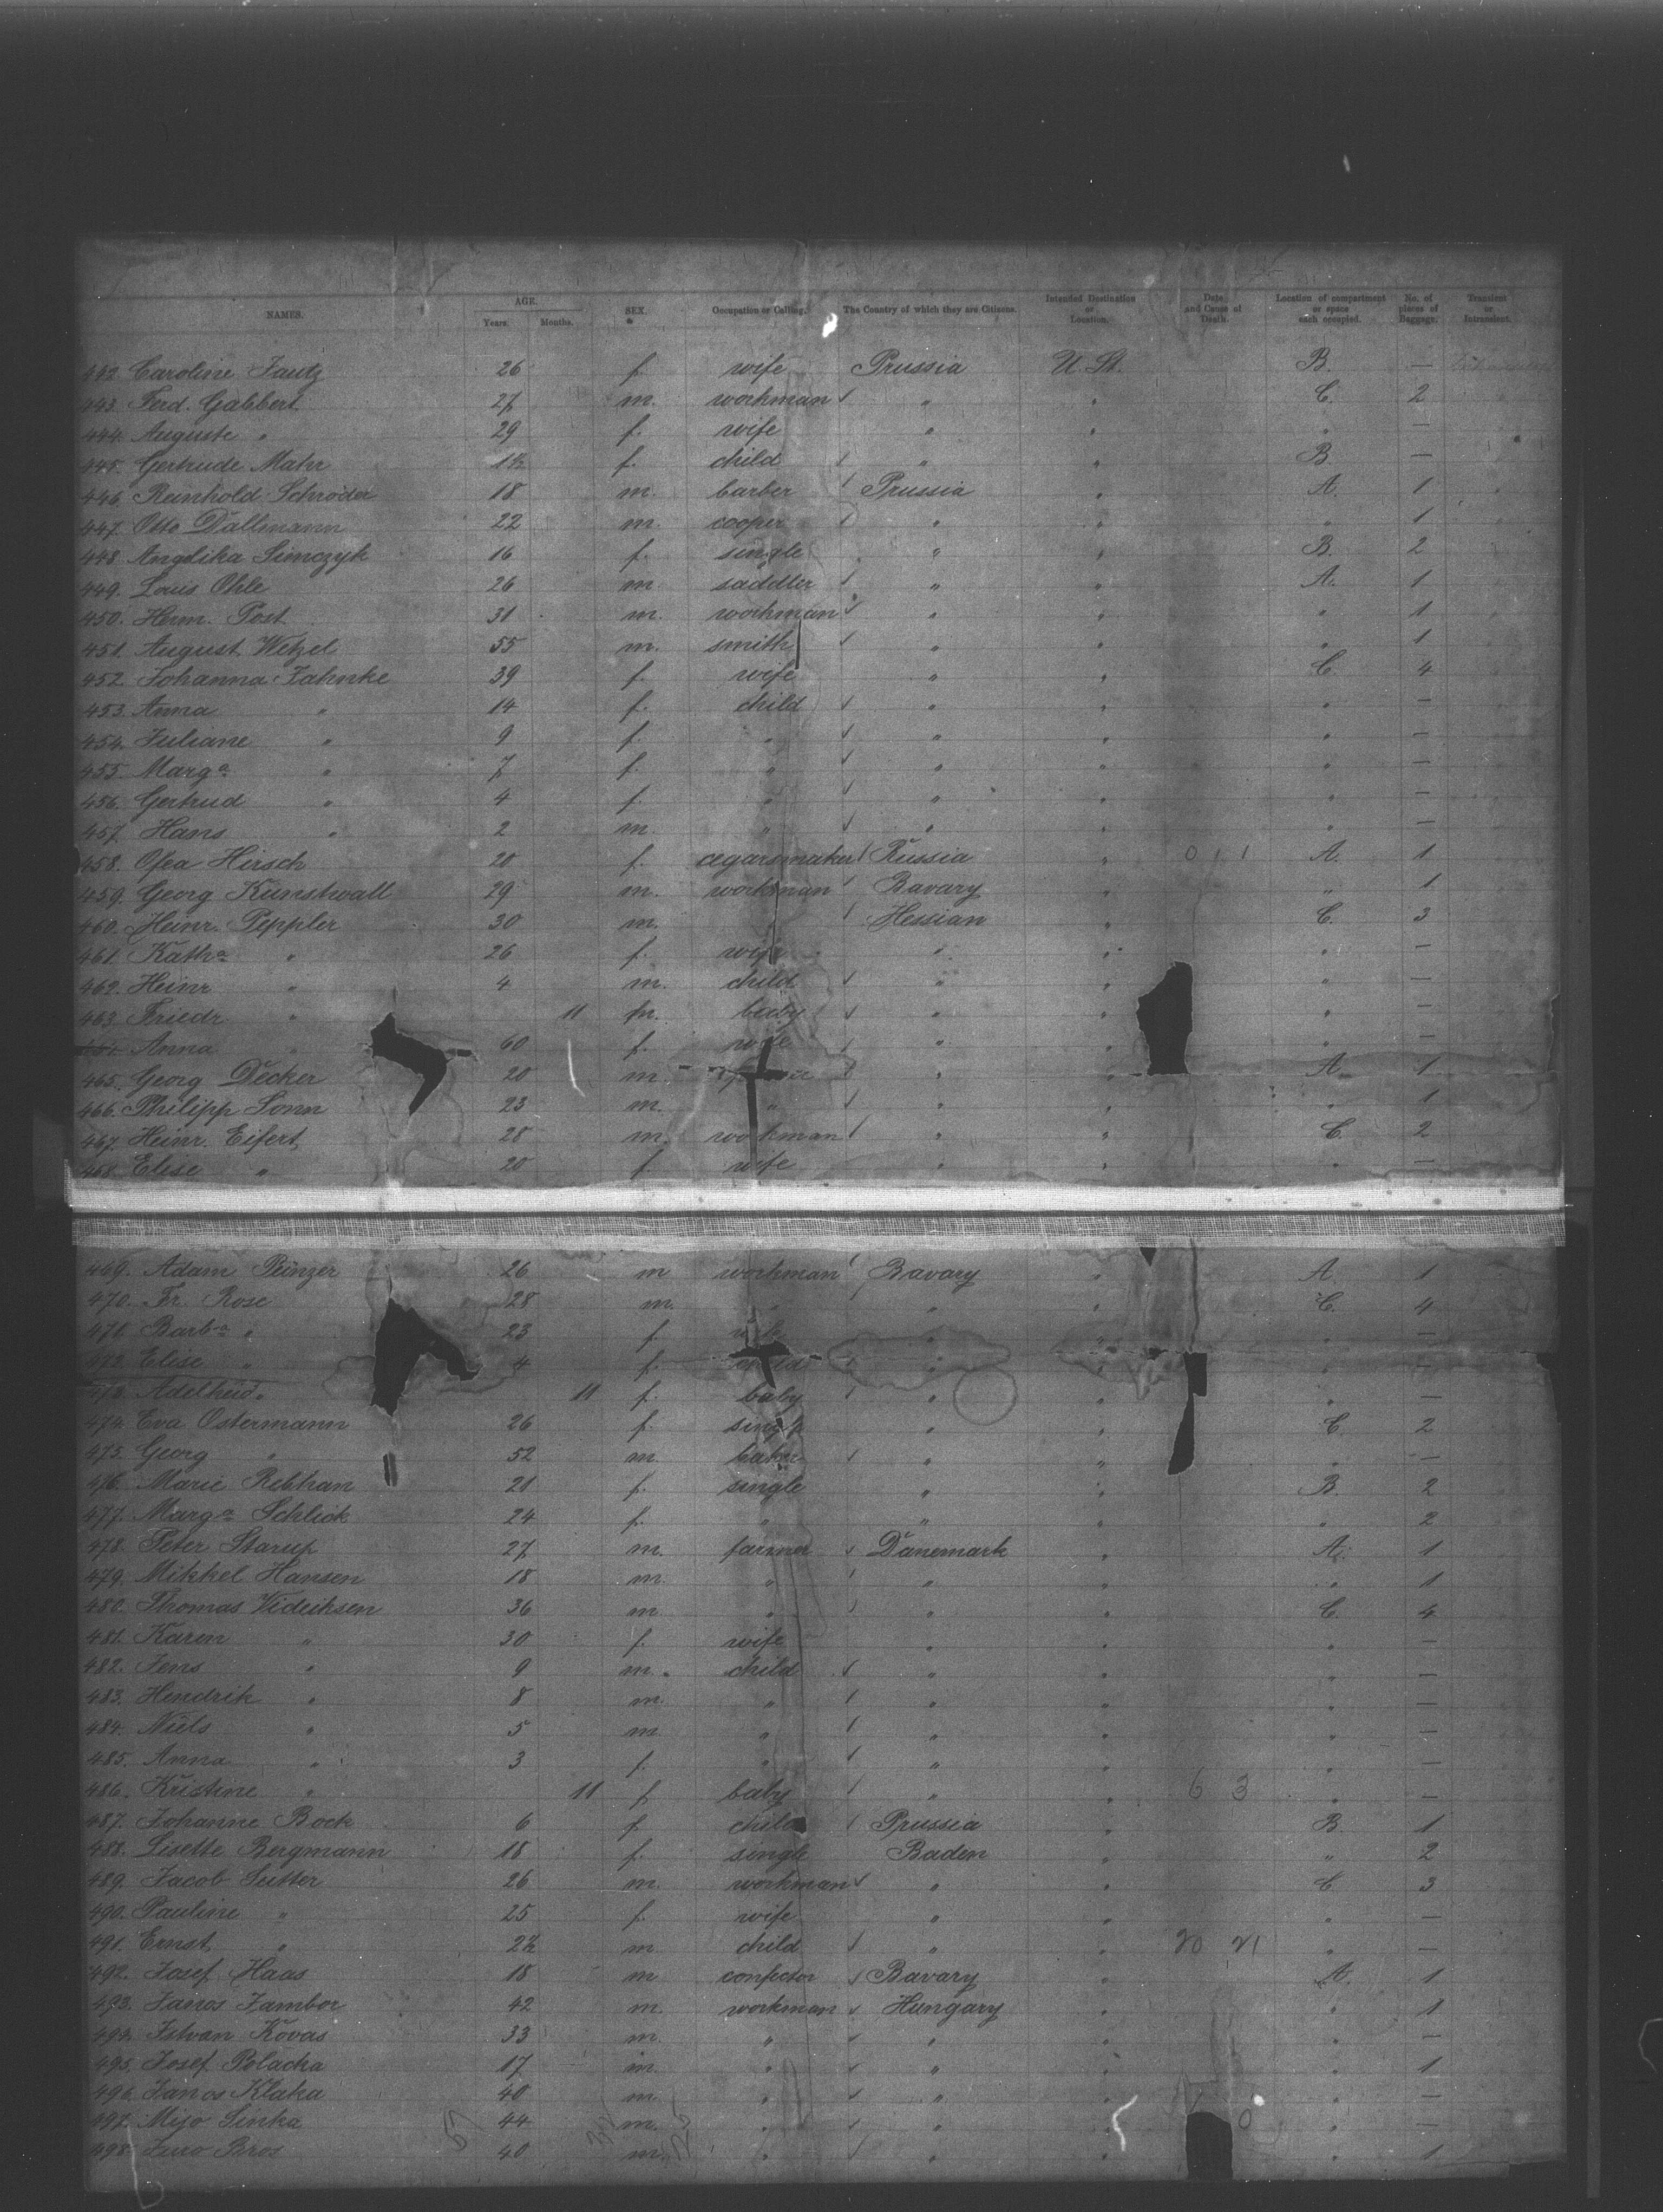 NAMES. AGE. Years. Months. SEX. Occupation or Calling. The Country of which they are Citizens. Intended Destination or Location. Date and Cause of Death. Location of compartment or space each occupied. No. of pieces of Baggage. Transient or Intransient.
442. Caroline Jautz 26 f. wife Prussia U. St. B. —
443. Ferd. Gabbert 27 m. workman " " C. 2
444. Auguste " 29 f. wife " " " —
445. Gertrude Mahr 1½ f. child " " B. —
446. Reinhold Schröder 18 m. barber Prussia " A. 1
447. Otto Dallmann 22 m. cooper " " " 1
448. Angelika Simczyk 16 f. single " " B. 2
449. Louis Ohle 26 m. saddler " " A. 1
450. Herm. Post 31 m. workman " " " 1
451. August Wetzel 55 m. smith " " " 1
452. Johanna Jahnke 39 f. wife " " C. 4
453. Anna " 14 f. child " " " —
454. Juliane " 9 f. " " " " —
455. Marga " 7 f. " " " " —
456. Gertrud " 4 f. " " " " —
457. Hans " 2 m. " " " " —
458. Hirsch 20 f. cegarsmaker Russia " 0 1 1 A. 1
459. Georg Kunstwall 29 m. workman Bavary " " 1
460. Heinr. Peppler 30 m. Hessian " C. 3
461. Katha " 26 f. wife " " " —
462. Heinr " 4 m. child " " " —
463. Friedr " 11 m. baby " " " —
Anna " 60 f. wife " " " —
465. Georg Decker 20 m " " A. 1
466. Philipp Sonn 23 m. " " " " 1
467. Heinr. Eifert 28 m. workman " " C. 2
468. Elise " 20 f. wife " " " —
469. Adam Pünzer 26 m workman Bavary " A. 1
470. Fr. Rose 28 m. " " " C. 4
471. Barba " 23 f. wife " " " —
472. Elise " 4 f. child " " " —
473. Adelheid " 11 f. baby " " " —
474. Eva Ostermann 26 f. single " " C. 2
475. Georg " 52 m. baker " " " —
476. Marie Rebhan 21 f. single " " B. 2
477. Marga Schlick 24 f. " " " " 2
478. Peter Starup 27 m. farmer Danemark " A. 1
479. Mikkel Hansen 18 m. " " " " 1
480. Thomas Videriksen 36 m. " " " C. 4
481. Karen " 30 f. wife " " " —
482. Jens " 9 m. child " " " —
483. Hendrik " 8 m. " " " " —
484. Niels " 5 m. " " " " —
485. Anna " 3 f. " " " " —
486. Kristine " 11 f. baby " " 6 3 " —
487. Johanne Bock 6 f. child Prussia " B. 1
488. Lisette Bergmann 18 f. single Baden " " 2
489. Jacob Sutter 26 m. workman " " C. 3
490. Pauline " 25 f. wife " " " —
491. Ernst " 2½ m. child " " 20 21 " —
492. Josef Haas 18 m confector Bavary " A. 1
493. Janos Jambor 42 m. workman Hungary " " 1
494. Istvan Kovas 33 m. " " " " —
495. Josef Polacka 17 m. " " " " 1
496. Janos Klaka 40 m. " " " " —
497. Mijo Sinka 44 m. " " " 0 " —
498. Juro Bros 40 m. " " " " 1